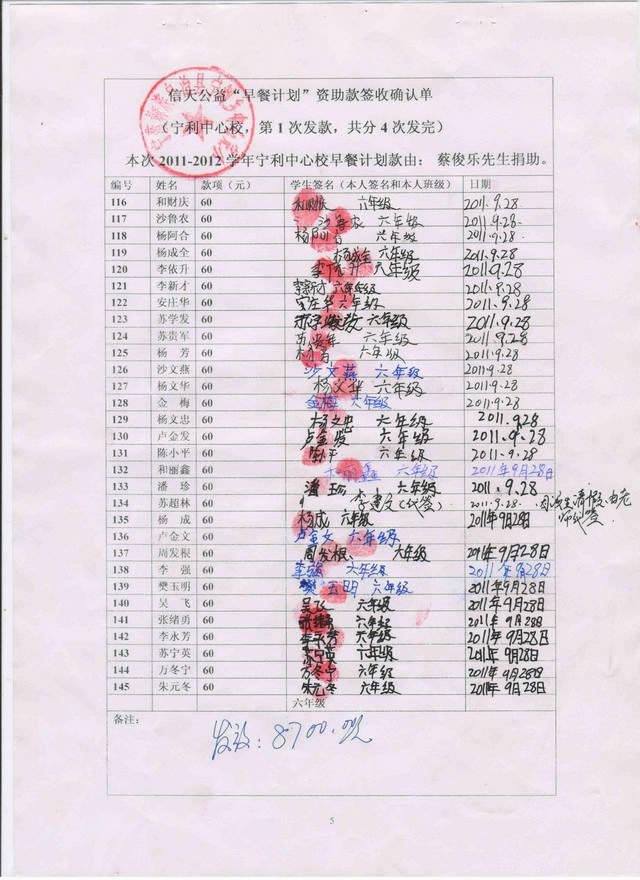 信天公益“早餐计划”资助款签收确认单
（宁利中心校，第1次发款，共分4次发完）
本次 2011-2012 学年宁利中心校早餐计划款由： 蔡俊乐先生捐助。
编号 姓名 款项（元） 学生签名（本人签名和本人班级） 日期
116 和财庆 60 和财庆 六年级 2011.9.28
117 沙鲁农 60 沙鲁农 六年级 2011.9.28
118 杨阿合 60 杨阿合 六年级 2011.9.28
119 杨成全 60 杨成全 六年级 2011.9.28
120 李依升 60 李依升 六年级 2011.9.28
121 李新才 60 李新才 六年级 2011.9.28
122 安庄华 60 安庄华 六年级 2011.9.28
123 苏学发 60 苏学发 六年级 2011.9.28
124 苏贵军 60 六年级 2011.9.28
125 杨 芳 60 杨芳 六年级 2011.9.28
126 沙文燕 60 沙文燕 六年级 2011.9.28
127 杨文华 60 杨文华 六年级 2011.9.28
128 金 梅 60 金梅 六年级 2011.9.28
129 杨文忠 60 杨文忠 六年级 2011.9.28
130 卢金发 60 卢金发 六年级 2011.9.28
131 陈小平 60 六年级 2011.9.28
132 和丽鑫 60 和丽鑫 六年级 2011年9月28日
133 潘 珍 60 潘珍 六年级 2011.9.28
134 苏超林 60 李建文(代签) 2011.9.28 因学生请假,由老
师代签
135 杨 成 60 杨成 六年级 2011年9月28日
136 卢金文 60 卢金文 六年级
137 周发根 60 周发根 六年级 2011年9月28日
138 李 强 60 李强 六年级 2011年9月28日
139 樊玉明 60 樊玉明 六年级 2011年9月28日
140 吴 飞 60 吴飞 六年级 2011年9月28日
141 张绪勇 60 张绪勇 六年级 2011年9月28日
142 李永芳 60 李永芳 六年级 2011年9月28日
143 苏宁英 60 苏宁英 六年级 2011年9月28日
144 万冬宁 60 万冬宁 六年级 2011年9月28日
145 朱元冬 60 朱元冬 六年级 2011年9月28日
六年级
备注：
发放：8700.00元
5